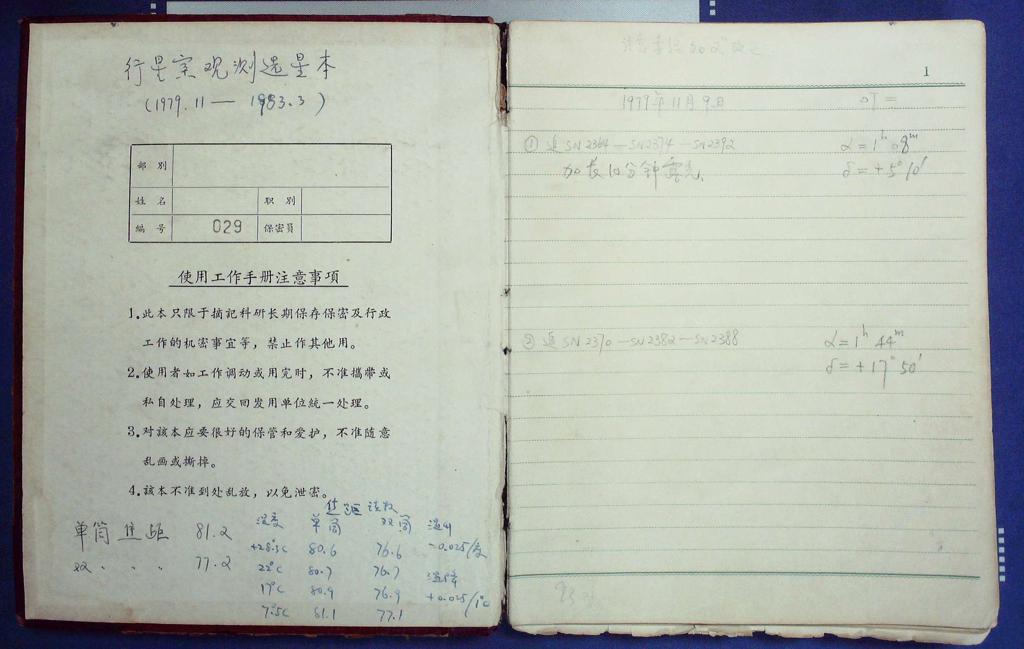 行星室观测选星本
(1979.11 — 1983.3)
部别
姓名 职别
编号 029 保密員
使用工作手册注意事項
1.此本只限于摘記科研长期保存保密及行政
工作的机密事宜等，禁止作其他用。
2.使用者如工作调动或用完时，不准攜带或
私自处理，应交回发用单位統一处理。
3.对該本应要很好的保管和爱护，不准随意
乱画或撕掉。
4.該本不准到处乱放，以免泄密。
焦距读数
单筒焦距 81.2
双 〃 〃 77.2
温度 单筒 双筒 温升
+28.5c 80.6 76.6 -0.025/度
22°c 80.7 76.7 温降
17°c 80.9 76.9 +0.025/1°c
7.5c 81.1 77.1
1
1979年11月9日 OT=
① 追 SN2364 — SN2374 — SN2392 α=1h 08m
加长10分钟露光. δ=+5°10′
② 追 SN2370 — SN2382 — SN2388 α=1h 44m
δ=+17°50′